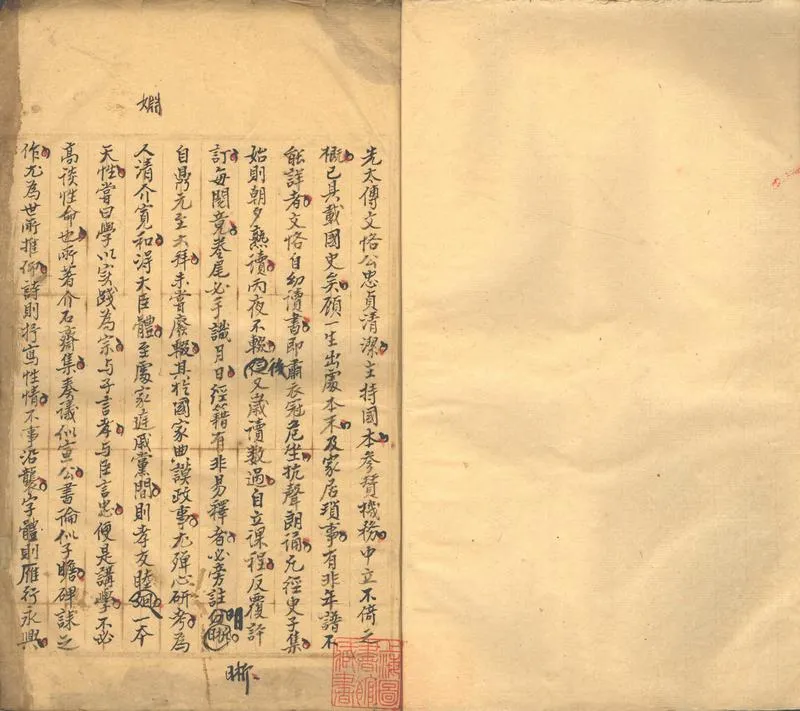 先太傅文恪公忠貞清潔主持國本參贊機務中立不倚之
概已具載國史矣顧一生出處本末及家居瑣事有非年譜不
能詳者文恪自幼讀書即肅衣冠危坐抗聲朗誦凡經史子集
始則朝夕熟讀丙夜不輟後又歲讀數過自立課程反覆評
訂每閱竟卷尾必手識月日經籍有非易釋者必旁註分明
自鼎元至大拜未嘗廢輟其於國家典謨政事尤殫心研考為
人清介寬和得大臣體至處家庭戚黨間則孝友睦婣一本
天性嘗曰學以实踐為宗与子言孝与臣言忠便是講學不必
高談性命也所著介石齋集奏議似宣公書論似子瞻碑誄之
作尤為世所推仰詩則抒寫性情不事沿襲字體則雁行永興
婣
晰
海圖
書館
藏書